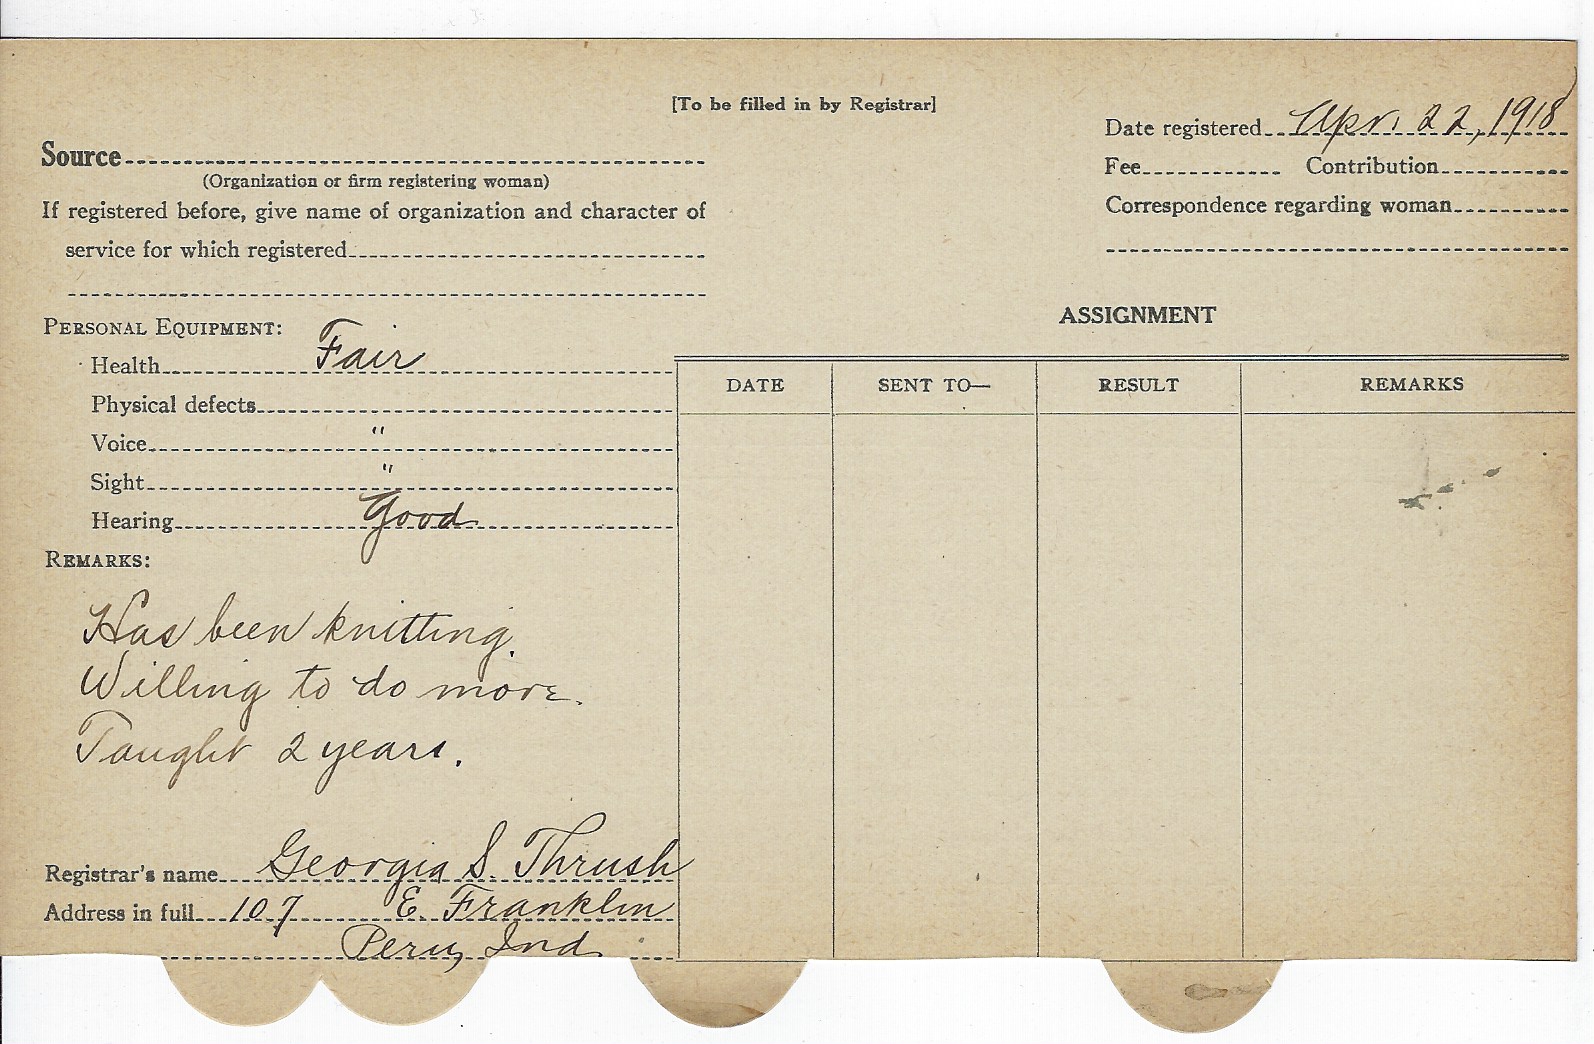 [To be filled in by Registrar]
Date registered Apr. 22, 1918
Source
(Organization or firm registering woman)
Fee Contribution
If registered before, give name of organization and character of
service for which registered
Correspondence regarding woman
PERSONAL EQUIPMENT:
Health Fair
Physical defects
Voice "
Sight "
Hearing Good
ASSIGNMENT
DATE SENT TO— RESULT REMARKS
REMARKS:
Has been knitting.
Willing to do more.
Taught 2 years.
Registrar's name Georgia S. Thrush
Address in full 107 E. Franklin
Peru, Ind.